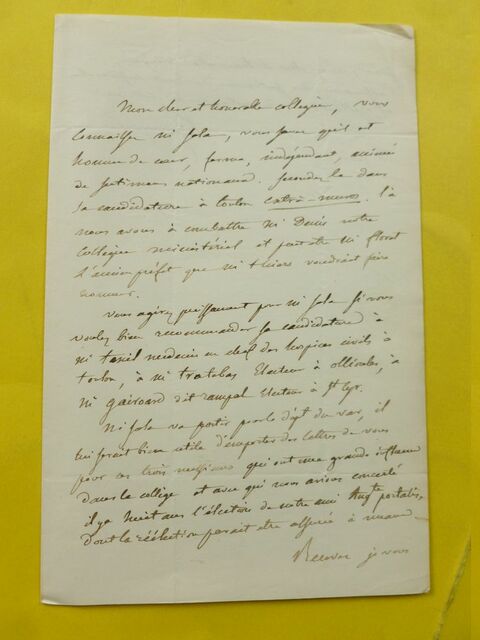 Mon cher et honorable collègue, vous
connaissez M Sala, vous savez qu'il est
homme de cœur, ferme, indépendant, animé
de sentimens nationaux. Secondez le dans
sa candidature à toulon extra-muros. là
nous avons à combattre M Denis notre
collègue ministériel et peut être M floret
l'ancien préfet que M thiers voudrait faire
nommer.
vous agirez puissamment pour M Sala si vous
voulez bien recommander sa candidature à
M médecin en chef des hospices civils à
toulon, à M Electeur à ollioules, à
M dit rampal Electeur à St Cyr.
M Sala va partir pour le dépt du var, il
lui serait bien utile d'emporter des lettres de vous
pour ces trois messieurs qui ont une grande influence
dans le collège et avec qui nous avions concerté
il y a huit ans l'élection de notre ami Augte portalis,
dont la réélection parait être assurée à
Recevez je vous